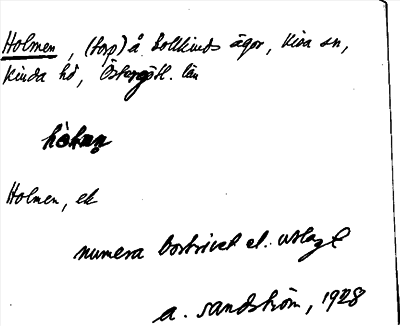 Holmen, (torp) å Bollkinds ägor, Kisa sn,
Kinda hd, Östergötl. län
hòlmən
Holmen, ek
numera bortrivet el. utlagt
A. Sandström, 1928